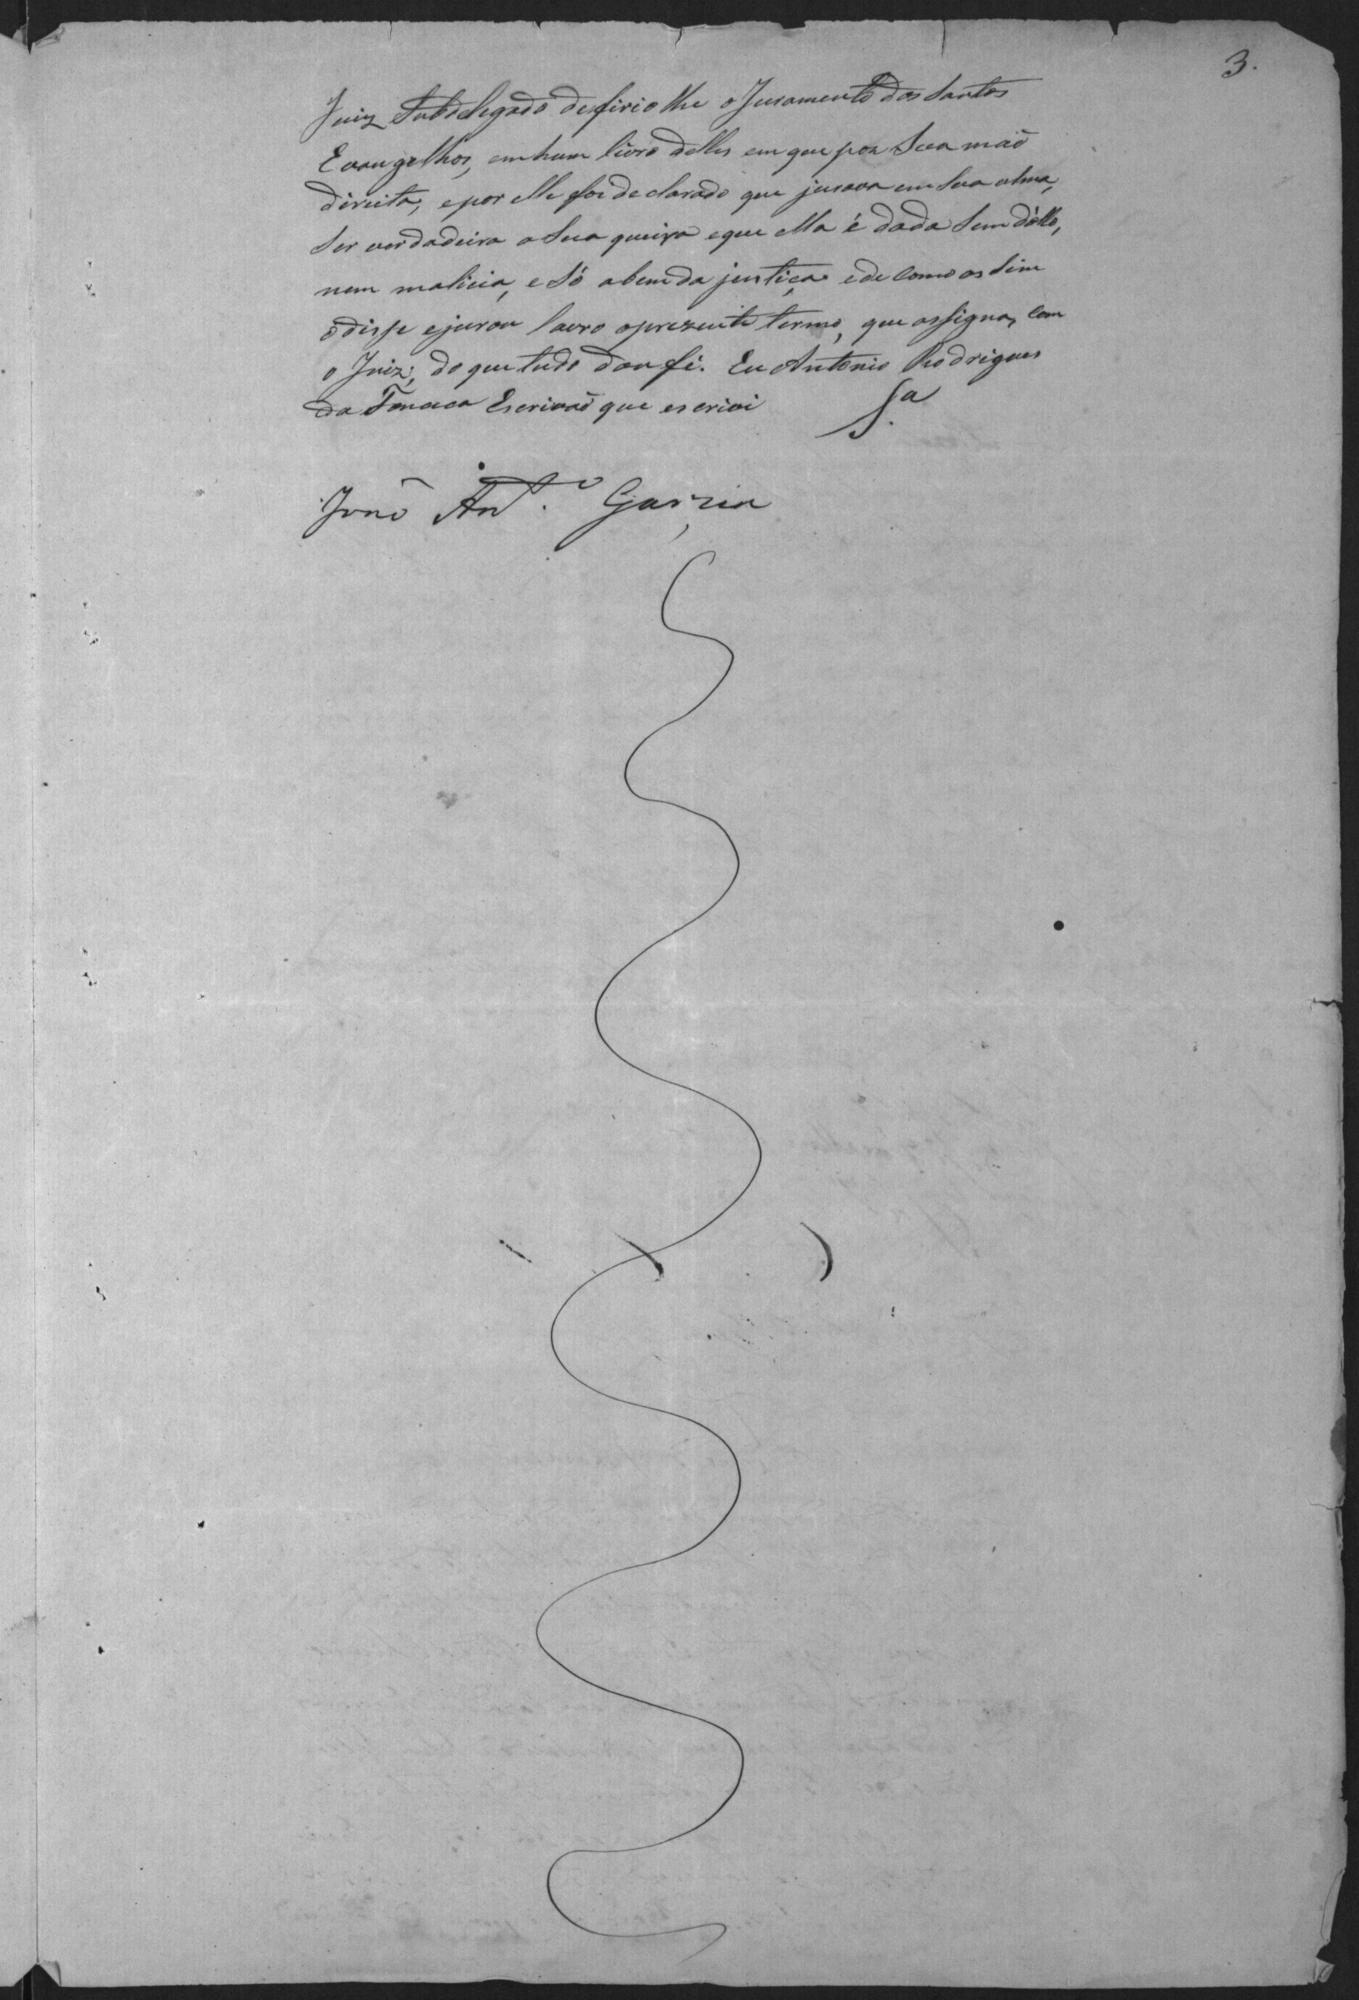 3.
Juiz Subdelegado defirio lhe o Juramento dos Santos
Evangelhos, em hum livro delles em que poz Sua maõ
direita, e por elle foi declarado que jurava em Sua alma,
Ser verdadeira a Sua queixa e que ella é dada Sem dóllo,
nem malicia, e Só a bem da justiça e de como as Sim
o disse e jurou lavro o prezente termo, que assigna, com
o Juiz, do que tudo dou fé. Eu Antonio Rodrigues
da Fonceca Escrivaõ que escrivi
Sa
João Anto. Garzia